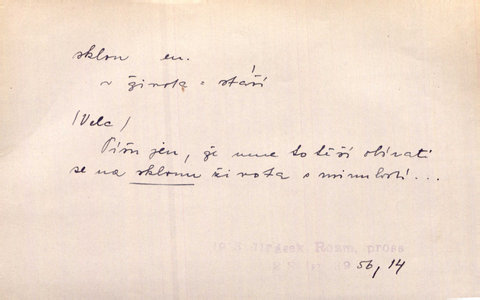 sklon en.
~ života = stáří
(Vela)
Píši jen, že mne to těší obírati
se na sklonu života s minulostí...
Jirásek Rozm. prosa
56, 14